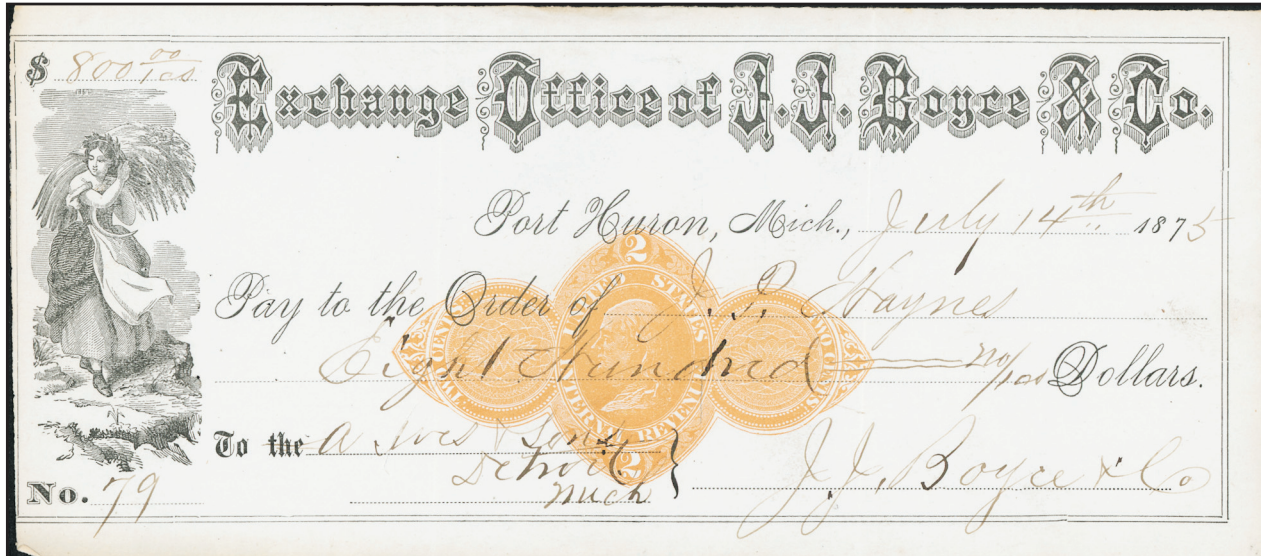 $ 800 00/100
Exchange Office of J. J. Boyce & Co.
Port Huron, Mich., July 14th 1875
Pay to the Order of J. P. Haynes
Eight Hundred no/100 Dollars.
To the A Ives & Sons
Detroit
Mich
J. J. Boyce & Co
No. 79
2
UNITED STATES
INTERNAL REVENUE
TWO CENTS
TWO CENTS
2